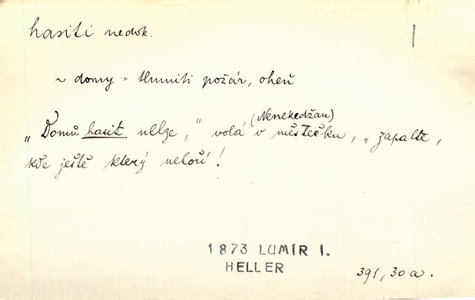 hasiti nedok.
~ domy = tlumiti požár, oheň
(Nenekedžan)
„Domů hasit nelze," volá v městečku, „zapalte,
kde ještě který nehoří!
1873 LUMÍR I.
HELLER
391, 30a.